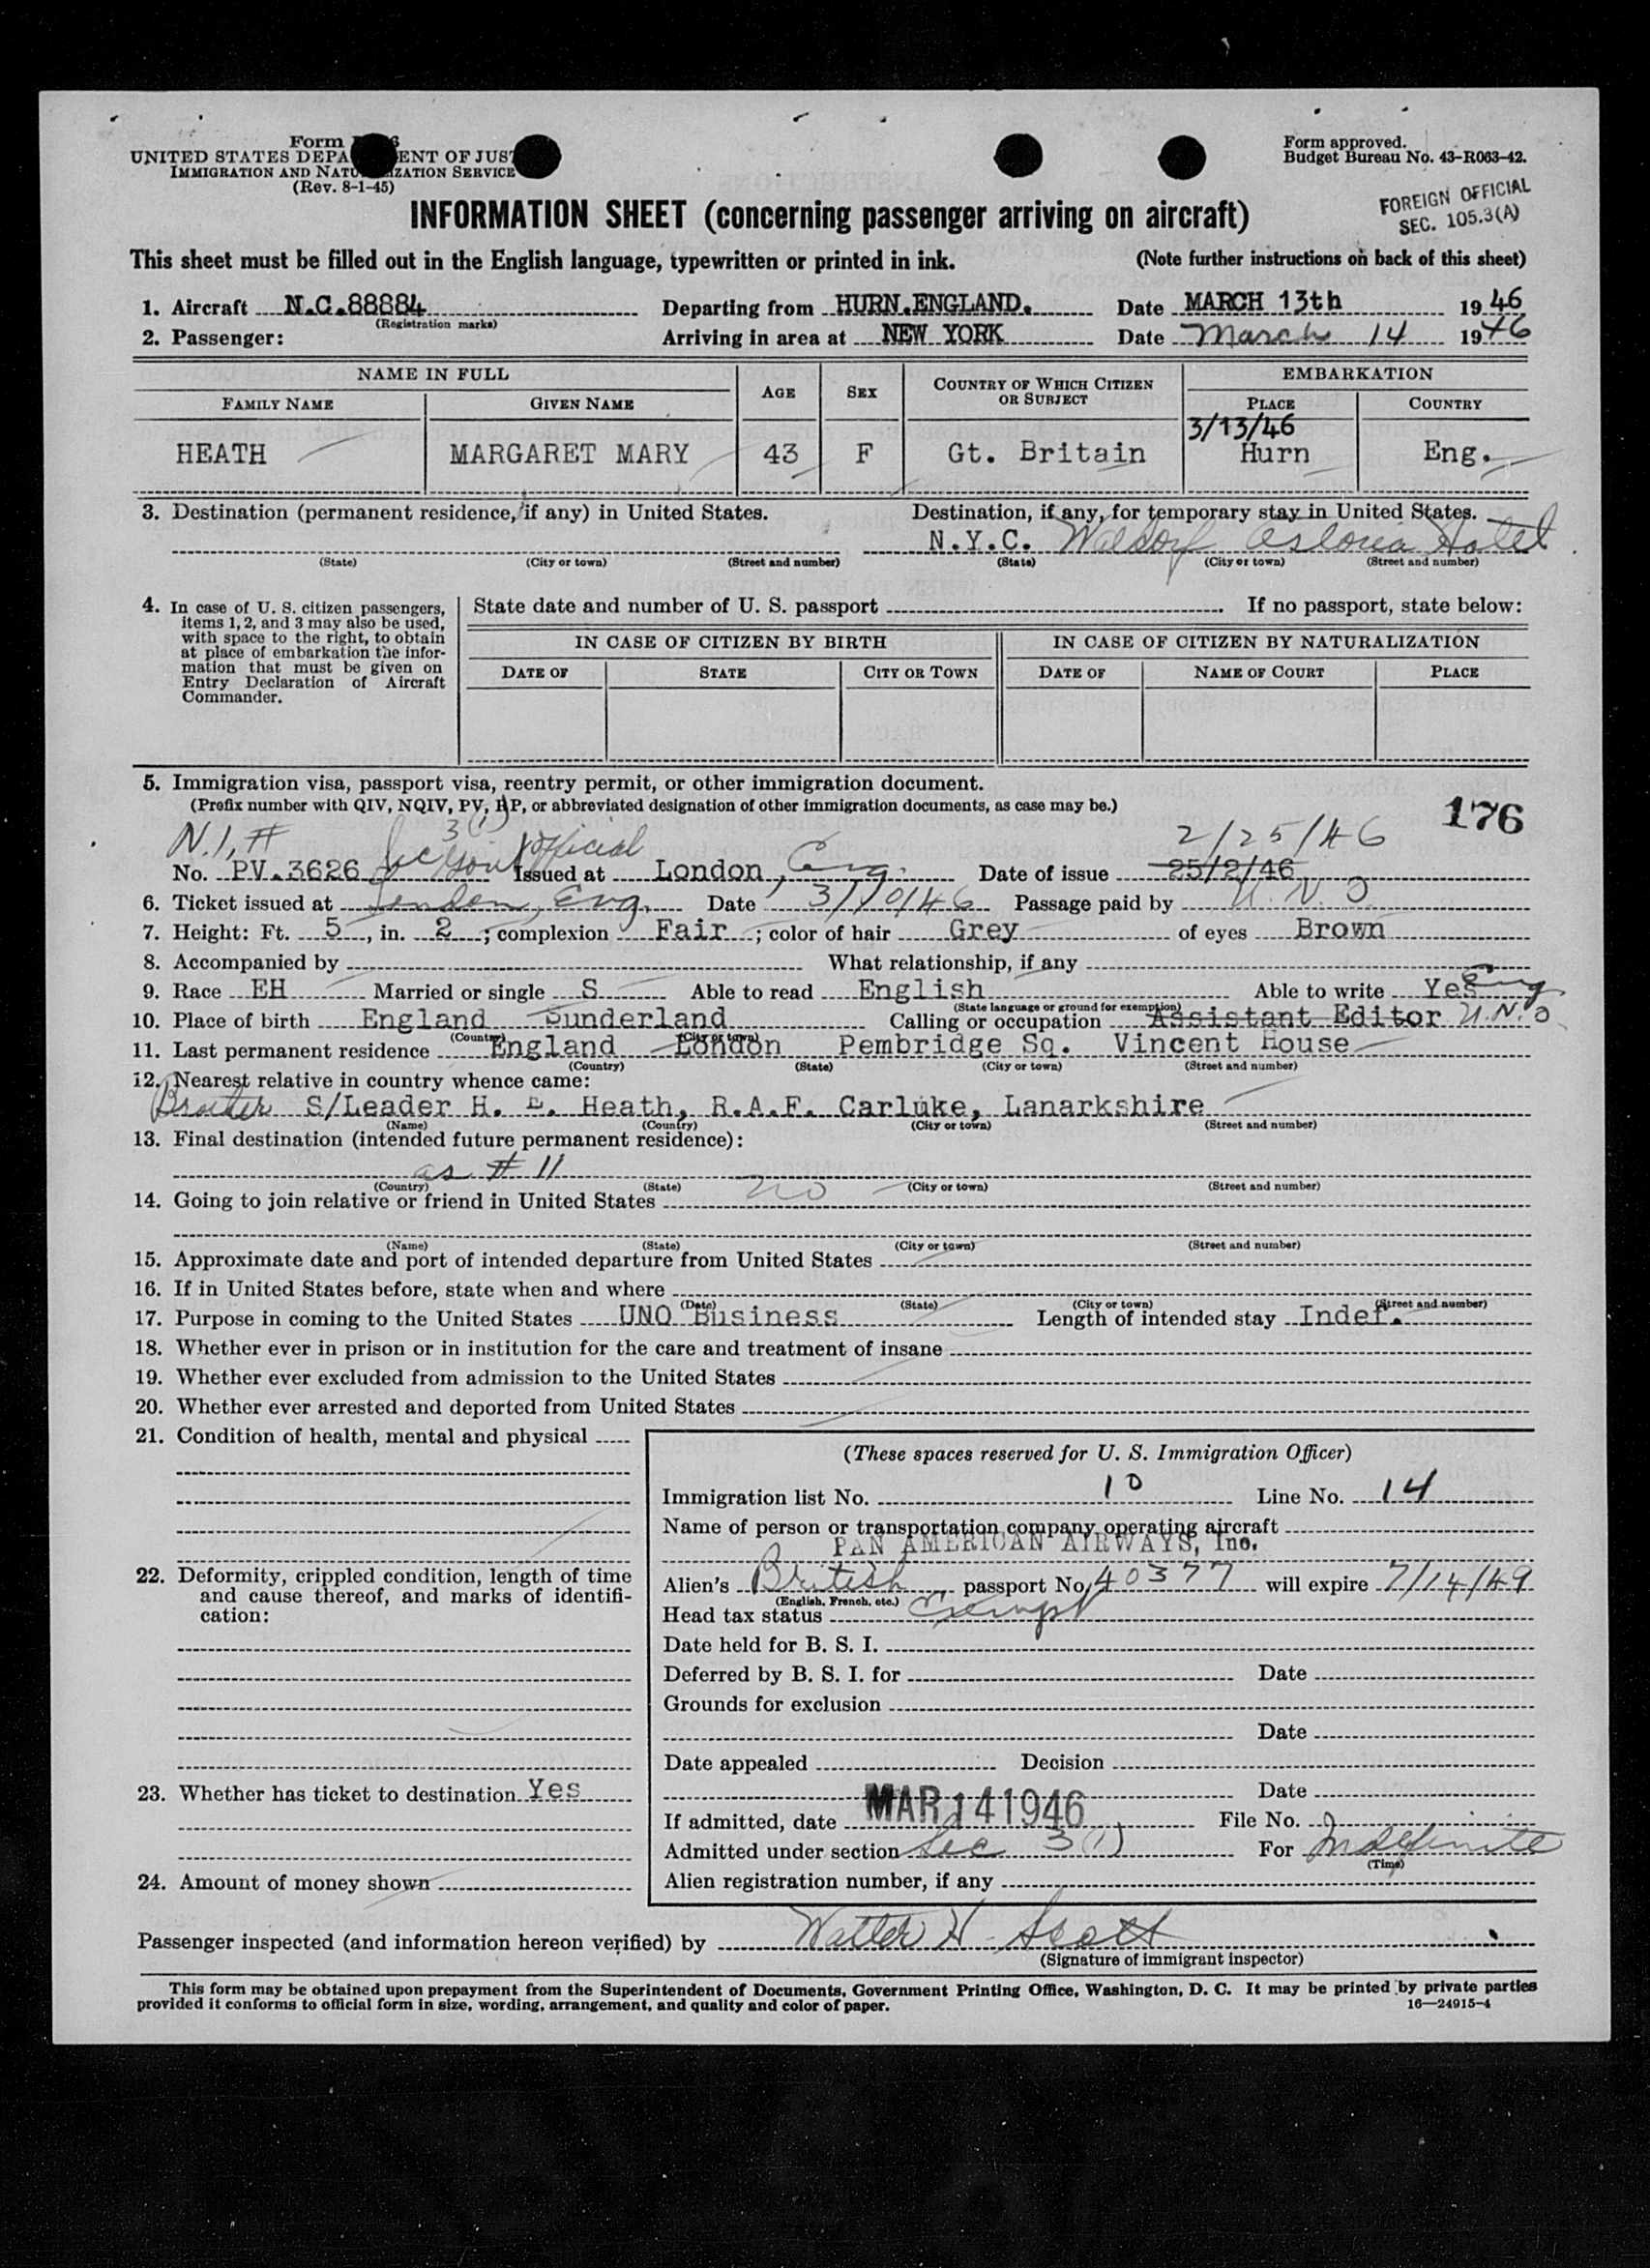 Form
UNITED STATES DEPA ENT OF JUST
IMMIGRATION AND NATU IZATION SERVICE
(Rev. 8-1-45)
Form approved.
Budget Bureau No. 43-R063-42.
FOREIGN OFFICIAL
SEC. 105.3(A)
INFORMATION SHEET (concerning passenger arriving on aircraft)
This sheet must be filled out in the English language, typewritten or printed in ink. (Note further instructions on back of this sheet)
1. Aircraft N.C.88884 Departing from HURN.ENGLAND. Date MARCH 13th 1946
(Registration marks)
2. Passenger: Arriving in area at NEW YORK Date March 14 1946
NAME IN FULL AGE SEX COUNTRY OF WHICH CITIZEN OR SUBJECT EMBARKATION
FAMILY NAME GIVEN NAME PLACE COUNTRY
3/13/46
HEATH MARGARET MARY 43 F Gt. Britain Hurn Eng.
3. Destination (permanent residence, if any) in United States. Destination, if any, for temporary stay in United States.
N.Y.C. Waldorf Astoria Hotel
(State) (City or town) (Street and number) (State) (City or town) (Street and number)
4. In case of U. S. citizen passengers, items 1, 2, and 3 may also be used, with space to the right, to obtain at place of embarkation the information that must be given on Entry Declaration of Aircraft Commander.
State date and number of U. S. passport If no passport, state below:
IN CASE OF CITIZEN BY BIRTH IN CASE OF CITIZEN BY NATURALIZATION
DATE OF STATE CITY OR TOWN DATE OF NAME OF COURT PLACE
5. Immigration visa, passport visa, reentry permit, or other immigration document.
(Prefix number with QIV, NQIV, PV, RP, or abbreviated designation of other immigration documents, as case may be.)
176
3(1) Official 2/25/46
No. PV.3626 Issued at London, Eng. Date of issue 25/2/46
6. Ticket issued at London, Eng. Date 3/10/46 Passage paid by U.N.O
7. Height: Ft. 5, in. 2; complexion Fair; color of hair Grey of eyes Brown
8. Accompanied by What relationship, if any
9. Race EH Married or single S Able to read English Able to write Yes Eng
(State language or ground for exemption)
10. Place of birth England Sunderland Calling or occupation Assistant Editor U.N.O
(Country) (City or town)
11. Last permanent residence England London Pembridge Sq. Vincent House
(Country) (State) (City or town) (Street and number)
12. Nearest relative in country whence came:
Brother S/Leader H. E. Heath, R.A.F. Carluke, Lanarkshire
(Name) (Country) (City or town) (Street and number)
13. Final destination (intended future permanent residence):
as # 11
(Country) (State) (City or town) (Street and number)
14. Going to join relative or friend in United States no
(Name) (State) (City or town) (Street and number)
15. Approximate date and port of intended departure from United States
16. If in United States before, state when and where
(Date) (State) (City or town) (Street and number)
17. Purpose in coming to the United States UNO Business Length of intended stay Indef.
18. Whether ever in prison or in institution for the care and treatment of insane
19. Whether ever excluded from admission to the United States
20. Whether ever arrested and deported from United States
21. Condition of health, mental and physical
22. Deformity, crippled condition, length of time and cause thereof, and marks of identification:
23. Whether has ticket to destination Yes
24. Amount of money shown
(These spaces reserved for U. S. Immigration Officer)
Immigration list No. 10 Line No. 14
Name of person or transportation company operating aircraft
PAN AMERICAN AIRWAYS, Inc.
Alien's British passport No. 40377 will expire 7/14/49
(English, French, etc.)
Head tax status Exempt
Date held for B. S. I.
Deferred by B. S. I. for Date
Grounds for exclusion
Date
Date appealed Decision
Date
If admitted, date MAR 14 1946 File No.
Admitted under section Sec 3(1) For Indefinite
(Time)
Alien registration number, if any
Passenger inspected (and information hereon verified) by Walter H. Scott
(Signature of immigrant inspector)
This form may be obtained upon prepayment from the Superintendent of Documents, Government Printing Office, Washington, D. C. It may be printed by private parties
provided it conforms to official form in size, wording, arrangement, and quality and color of paper. 16—24915-4